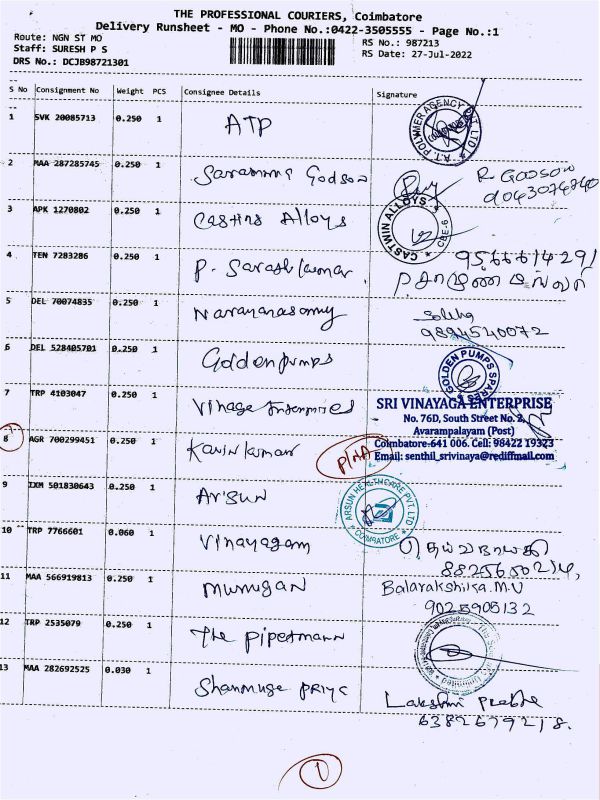 THE PROFESSIONAL COURIERS, Coimbatore
Delivery Runsheet - MO - Phone No.:0422-3505555 - Page No.:1
Route: NGN ST MO
Staff: SURESH P S
DRS No.: DCJB98721301
RS No.: 987213
RS Date: 27-Jul-2022
S No Consignment No Weight PCS Consignee Details Signature
1 SVK 20085713 0.250 1 ATP
A.T. POLYMER AGENCY PVT LTD
2 MAA 287285745 0.250 1 Godson R Godson
3 APK 1270802 0.250 1 Casting Alloys
CASTWIN ALLOYS CBE-6
4 TEN 7283286 0.250 1 P. Sarashkumar
5 DEL 70074835 0.250 1 Narayanasamy
9894540072
6 DEL 528405701 0.250 1 Golden pumps
GOLDEN PUMPS SPARES
7 TRP 4103047 0.250 1
SRI VINAYAGA ENTERPRISE
No. 76D, South Street No. 2,
Avarampalayam (Post)
Coimbatore-641 006. Cell: 98422 19323
Email: senthil_srivinaya@rediffmail.com
8 AGR 700299451 0.250 1 Kavinkumar P/NA
9 IXM 501830643 0.250 1 Arsun
ARSUN HEALTHCARE PVT. LTD
COIMBATORE
10 TRP 7766601 0.060 1 Vinayagam
11 MAA 566919813 0.250 1 Murugan Balarakshika.M.V
9025905132
12 TRP 2535079 0.250 1 The
13 MAA 282692525 0.030 1 Shanmuga Priya Lakshmi Prabha
6382679218.
1